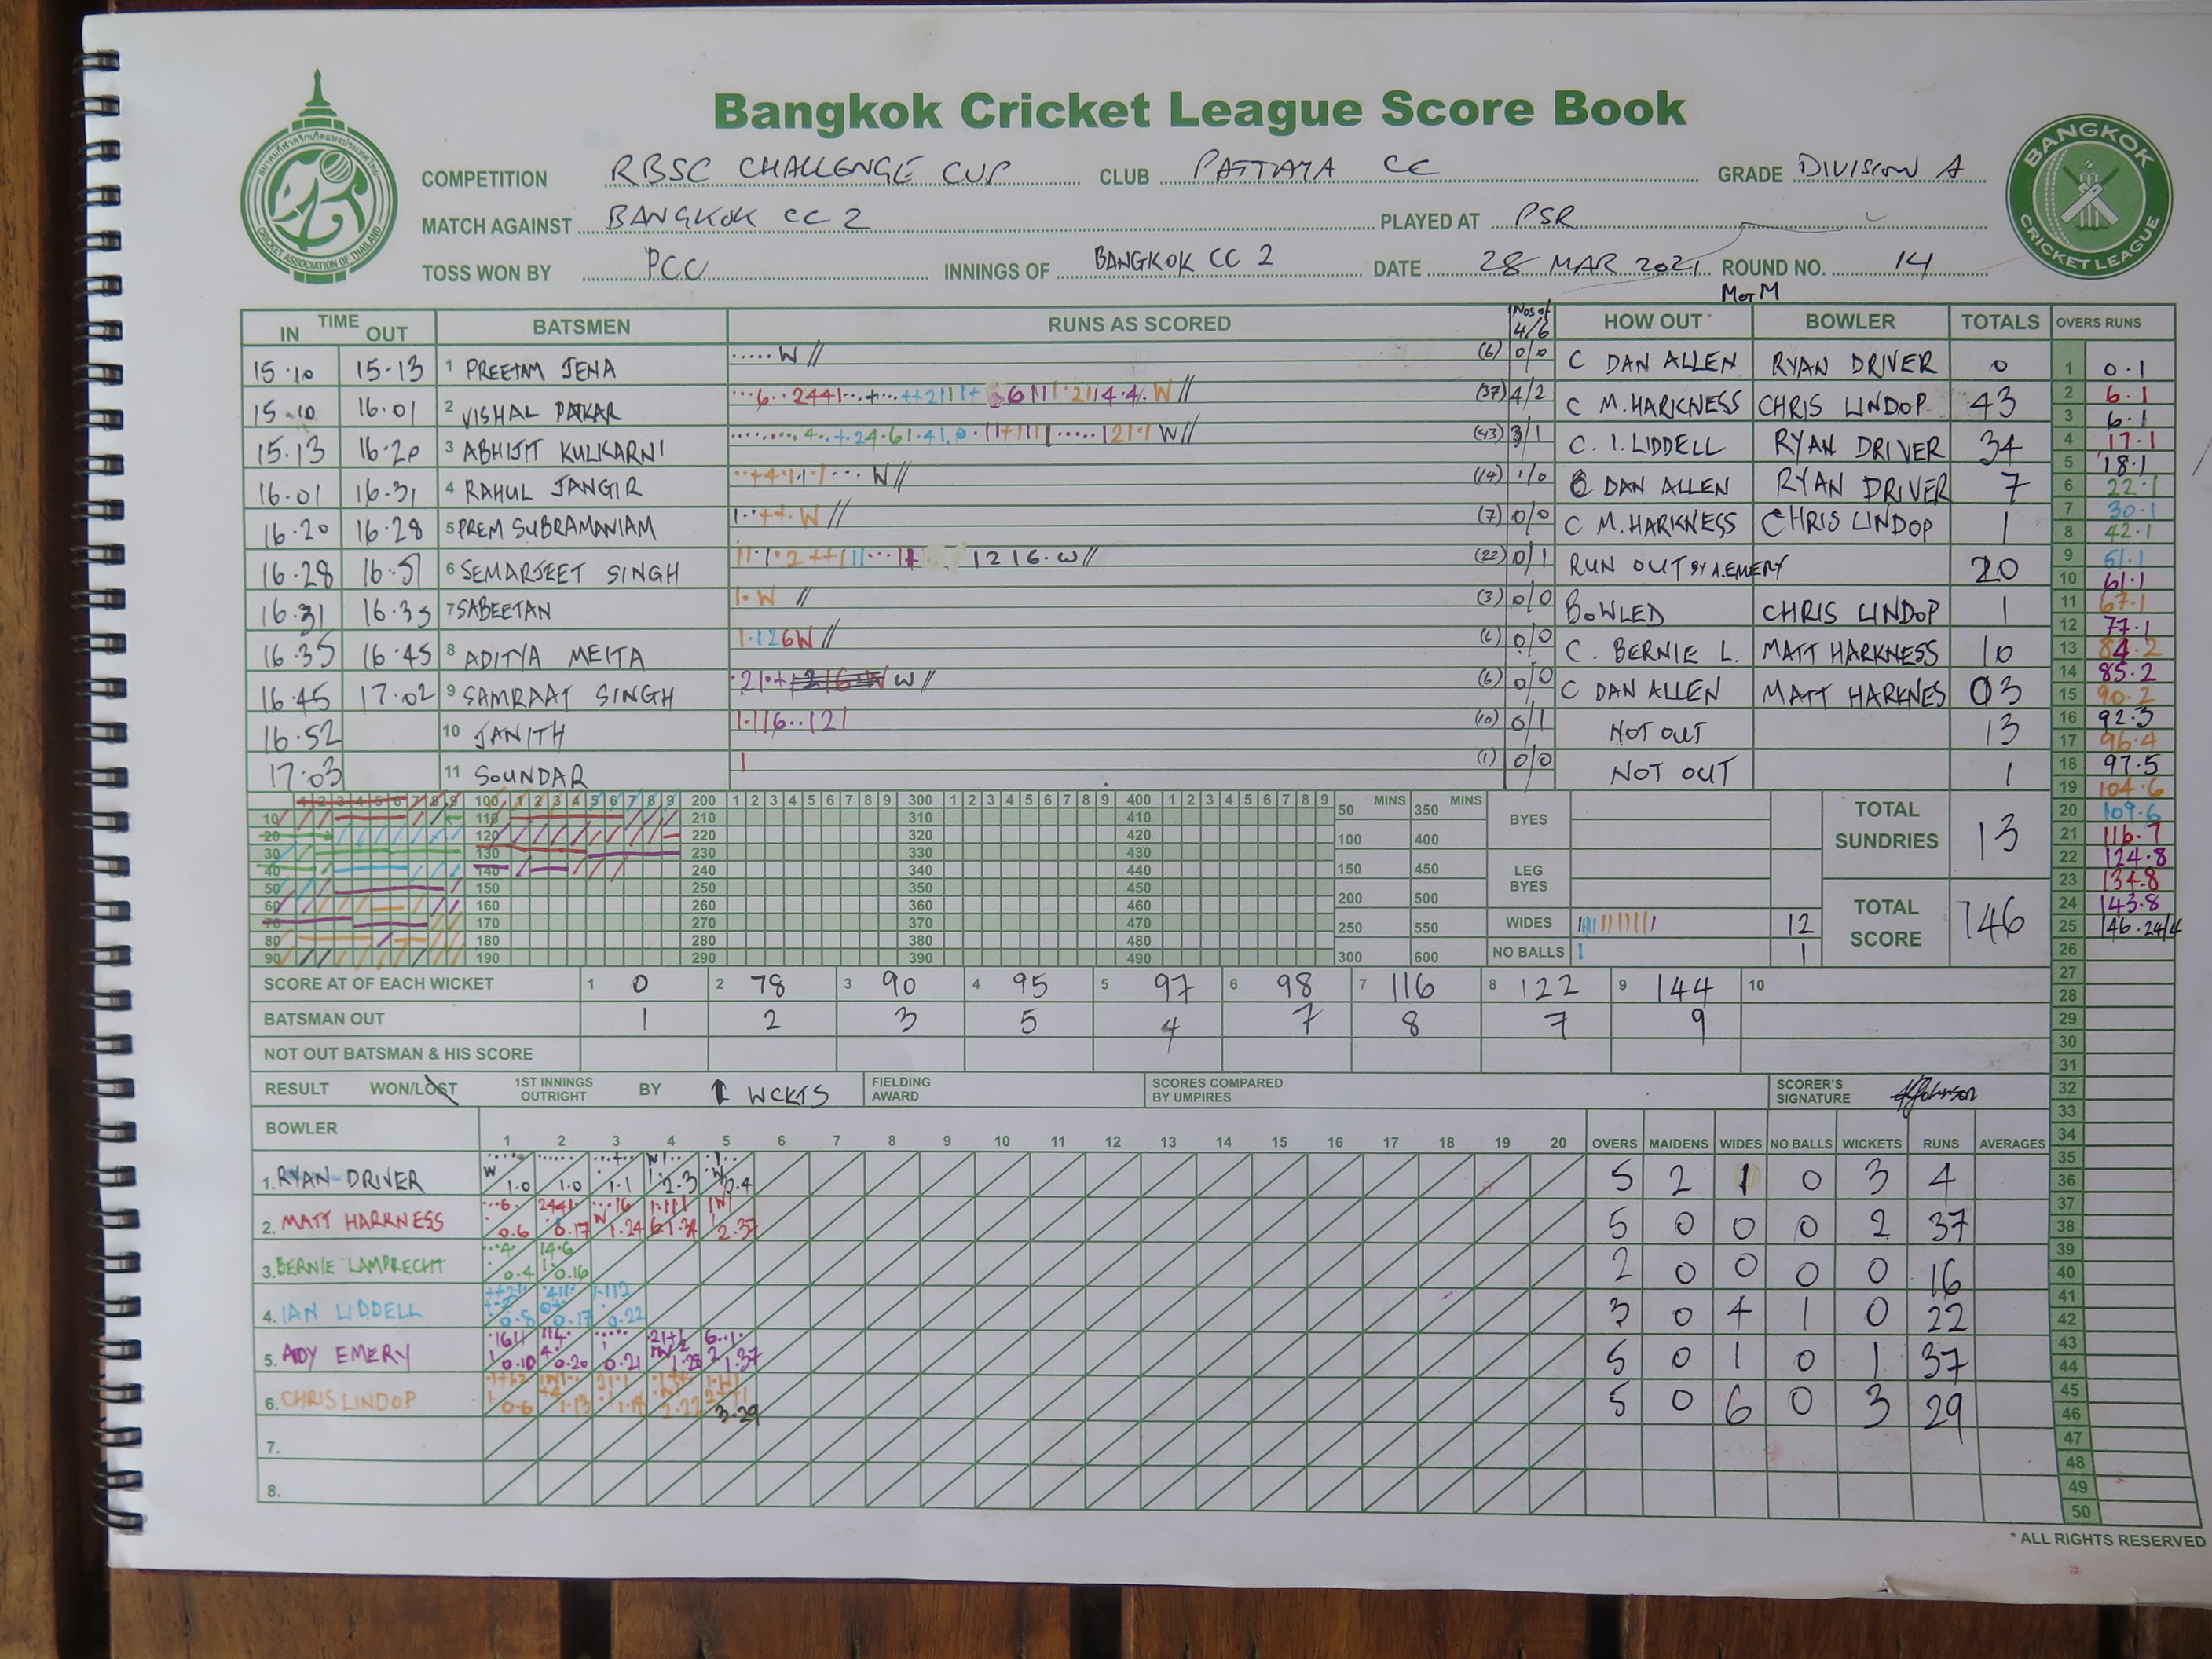 Bangkok Cricket League Score Book
COMPETITION RBSC CHALLENGE CUP CLUB PATTAYA CC GRADE DIVISION A
MATCH AGAINST BANGKOK CC 2 PLAYED AT PSR
TOSS WON BY PCC INNINGS OF BANGKOK CC 2 DATE 28 MAR 2021 ROUND NO. 14
CRICKET ASSOCIATION OF THAILAND
BANGKOK CRICKET LEAGUE
MOTM
TIME IN OUT BATSMEN RUNS AS SCORED Nos of 4/6 HOW OUT BOWLER TOTALS OVERS RUNS
15.10 15-13 1 PREETAM JENA .....W// (6) 0/0 C DAN ALLEN RYAN DRIVER 0
15.10 16.01 2 VISHAL PATKAR (37) 4/2 C M.HARKNESS CHRIS LINDOP 43
15.13 16.20 3 ABHIJIT KULKARNI (43) 3/1 C. I. LIDDELL RYAN DRIVER 34
16.01 16.31 4 RAHUL JANGIR (14) 1/0 C DAN ALLEN RYAN DRIVER 7
16.20 16.28 5 PREM SUBRAMANIAM 1..++.W// (7) 0/0 C M.HARKNESS CHRIS LINDOP 1
16.28 16.51 6 SEMARJEET SINGH 1216.W// (22) 0/1 RUN OUT BY A.EMERY 20
16.31 16.35 7 SABEETAN 1.W // (3) 0/0 BOWLED CHRIS LINDOP 1
16.35 16.45 8 ADITYA MEITA 1.126W// (6) 0/0 C. BERNIE L. MATT HARKNESS 10
16.45 17.02 9 SAMRAAT SINGH W// (6) 0/0 C DAN ALLEN MATT HARKNES 03
16.52 10 JANITH 1.116..121 (10) 0/1 NOT OUT 13
17.03 11 SOUNDAR 1 (1) 0/0 NOT OUT 1
1 0.1
2 6.1
3 6.1
4 17.1
5 18.1
6 22.1
7 30.1
8 42.1
9 51.1
10 61.1
11 67.1
12 77.1
13 84.2
14 85.2
15 90.2
16 92.3
17 96.4
18 97.5
19 104.6
20 109.6
21 116.7
22 124.8
23 134.8
24 143.8
25 146.
26
27
28
29
30
31
32
33
34
35
36
37
38
39
40
41
42
43
44
45
46
47
48
49
50
1 2 3 4 5 6 7 8 9 100 1 2 3 4 5 6 7 8 9 200 1 2 3 4 5 6 7 8 9 300 1 2 3 4 5 6 7 8 9 400 1 2 3 4 5 6 7 8 9
10 110 210 310 410
20 120 220 320 420
30 130 230 330 430
40 140 240 340 440
50 150 250 350 450
60 160 260 360 460
70 170 270 370 470
80 180 280 380 480
90 190 290 390 490
50 MINS 350 MINS
100 400
150 450
200 500
250 550
300 600
BYES
LEG BYES
WIDES 12
NO BALLS 1
TOTAL SUNDRIES 13
TOTAL SCORE 146
SCORE AT OF EACH WICKET 1 0 2 78 3 90 4 95 5 97 6 98 7 116 8 122 9 144 10
BATSMAN OUT 1 2 3 5 4 7 8 7 9
NOT OUT BATSMAN & HIS SCORE
RESULT WON/LOST 1ST INNINGS OUTRIGHT BY 1 WCKTS FIELDING AWARD SCORES COMPARED BY UMPIRES SCORER'S SIGNATURE
BOWLER 1 2 3 4 5 6 7 8 9 10 11 12 13 14 15 16 17 18 19 20 OVERS MAIDENS WIDES NO BALLS WICKETS RUNS AVERAGES
1. RYAN DRIVER 1.0 1.0 1.1 2.3 3.4 5 2 1 0 3 4
2. MATT HARKNESS 0.6 0.17 1.24 1.34 2.37 5 0 0 0 2 37
3. BERNIE LAMPRECHT 0.4 0.16 2 0 0 0 0 16
4. IAN LIDDELL 0.8 0.17 0.22 3 0 4 1 0 22
5. ADY EMERY 0.10 0.20 0.21 1.28 1.37 5 0 1 0 1 37
6. CHRIS LINDOP 0.6 1.13 1.18 2.22 3.29 5 0 6 0 3 29
7.
8.
* ALL RIGHTS RESERVED